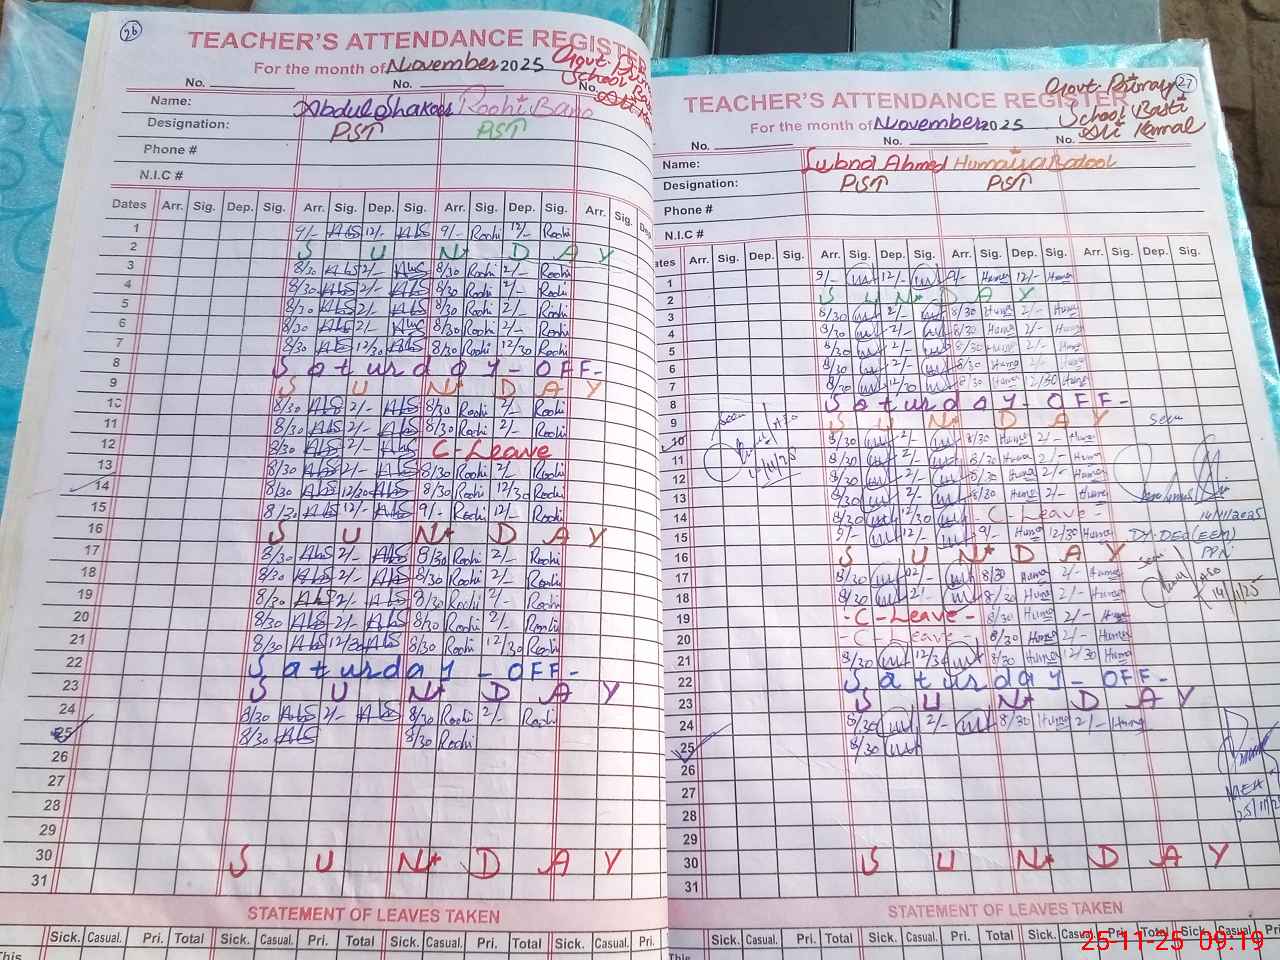 26
TEACHER'S ATTENDANCE REGISTE
For the month of November 2025
Govt.
School
No. No. No.
Name: Abdul Shakoor Roohi Bano
Designation: PST PST
Phone #
N.I.C #
Dates Arr. Sig. Dep. Sig. Arr. Sig. Dep. Sig. Arr. Sig. Dep. Sig. Arr. Sig. De
1 9/- AbS 12/- AbS 9/- Roohi 12/- Roohi
2 S U N D A Y
3 8/30 AbS 2/- AbS 8/30 Roohi 2/- Roohi
4 8/30 AbS 2/- AbS 8/30 Roohi 2/- Roohi
5 8/30 AbS 2/- AbS 8/30 Roohi 2/- Roohi
6 8/30 AbS 2/- AbS 8/30 Roohi 2/- Roohi
7 8/30 AbS 12/30 AbS 8/30 Roohi 12/30 Roohi
8 Saturday - OFF -
9 S U N D A Y
10 8/30 AbS 2/- AbS 8/30 Roohi 2/- Roohi
11 8/30 AbS 2/- AbS 8/30 Roohi 2/- Roohi
12 8/30 AbS 2/- AbS C-Leave
13 8/30 AbS 2/- AbS 8/30 Roohi 2/- Roohi
14 8/30 AbS 12/30 AbS 8/30 Roohi 12/30 Roohi
15 8/30 AbS 12/- AbS 9/- Roohi 12/- Roohi
16 S U N D A Y
17 8/30 AbS 2/- AbS 8/30 Roohi 2/- Roohi
18 8/30 AbS 2/- AbS 8/30 Roohi 2/- Roohi
19 8/30 AbS 2/- AbS 8/30 Roohi 2/- Roohi
20 8/30 AbS 2/- AbS 8/30 Roohi 2/- Roohi
21 8/30 AbS 12/30 AbS 8/30 Roohi 12/30 Roohi
22 Saturday - OFF -
23 S U N D A Y
24 8/30 AbS 2/- AbS 8/30 Roohi 2/- Roohi
25 8/30 AbS 8/30 Roohi
26
27
28
29
30 S U N D A Y
31
STATEMENT OF LEAVES TAKEN
Sick. Casual. Pri. Total Sick. Casual. Pri. Total Sick. Casual. Pri. Total Sick. Casual. Pri.
This
27
TEACHER'S ATTENDANCE REGISTER
For the month of November 2025
Govt. Primary
School Basti
Ali Kamal
No. No. No.
Name: Lubna Ahmed Humaira Batool
Designation: PST PST
Phone #
N.I.C #
ates Arr. Sig. Dep. Sig. Arr. Sig. Dep. Sig. Arr. Sig. Dep. Sig. Arr. Sig. Dep. Sig.
1 9/- 12/- 9/- Huma 12/- Huma
2 S U N D A Y
3 8/30 2/- 8/30 Huma 2/- Huma
4 8/30 2/- 8/30 Huma 2/- Huma
5 8/30 2/- 8/30 Huma 2/- Huma
6 8/30 2/- 8/30 Huma 2/- Huma
7 8/30 12/30 8/30 Huma 12/30 Huma
8 Saturday - OFF -
9 S U N D A Y
10 8/30 2/- 8/30 Huma 2/- Huma
11 8/30 2/- 8/30 Huma 2/- Huma
12 8/30 2/- 8/30 Huma 2/- Huma
13 8/30 2/- 8/30 Huma 2/- Huma
14 8/30 12/30 - C - Leave -
15 9/- 12/- 9/- Huma 12/30 Huma
16 S U N D A Y
17 8/30 02/- 8/30 Huma 2/- Huma
18 8/30 2/- 8/30 Huma 2/- Huma
19 - C - Leave - 8/30 Huma 2/- Huma
20 - C - Leave 8/30 Huma 2/- Huma
21 8/30 12/30 8/30 Huma 12/30 Huma
22 Saturday - OFF -
23 S U N D A Y
24 8/30 2/- 8/30 Huma 2/- Huma
25 8/30
26
27
28
29
30 S U N D A Y
31
Seen
AEO
Seen
14/11/2025
Dy. DEO (EEM)
PPN
Seen
AEO
14/11/25
MEA
STATEMENT OF LEAVES TAKEN
Sick. Casual. Pri. Total Sick. Casual. Pri. Total Sick. Casual. Pri. Total Sick. Casual. Pri.
This
25-11-25 09:19